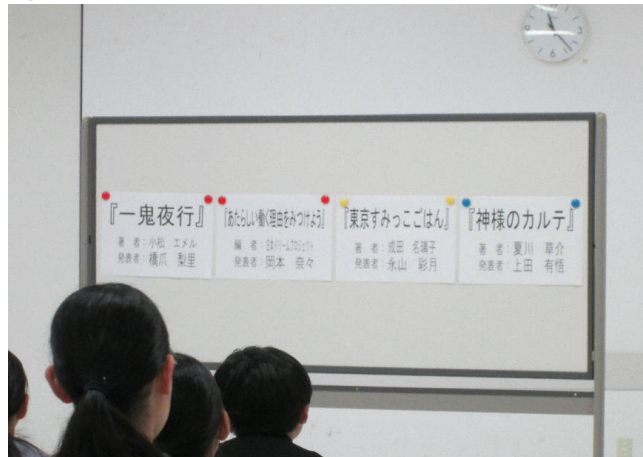 『一鬼夜行』
著 者：小松 エメル
発表者：橋爪 梨里
『あたらしい働く理由をみつけよう』
編 者：日本ドリームプロジェクト
発表者：岡本 奈々
『東京すみっこごはん』
著 者：成田 名璃子
発表者：永山 彩月
『神様のカルテ』
著 者：夏川 草介
発表者：上田 有悟